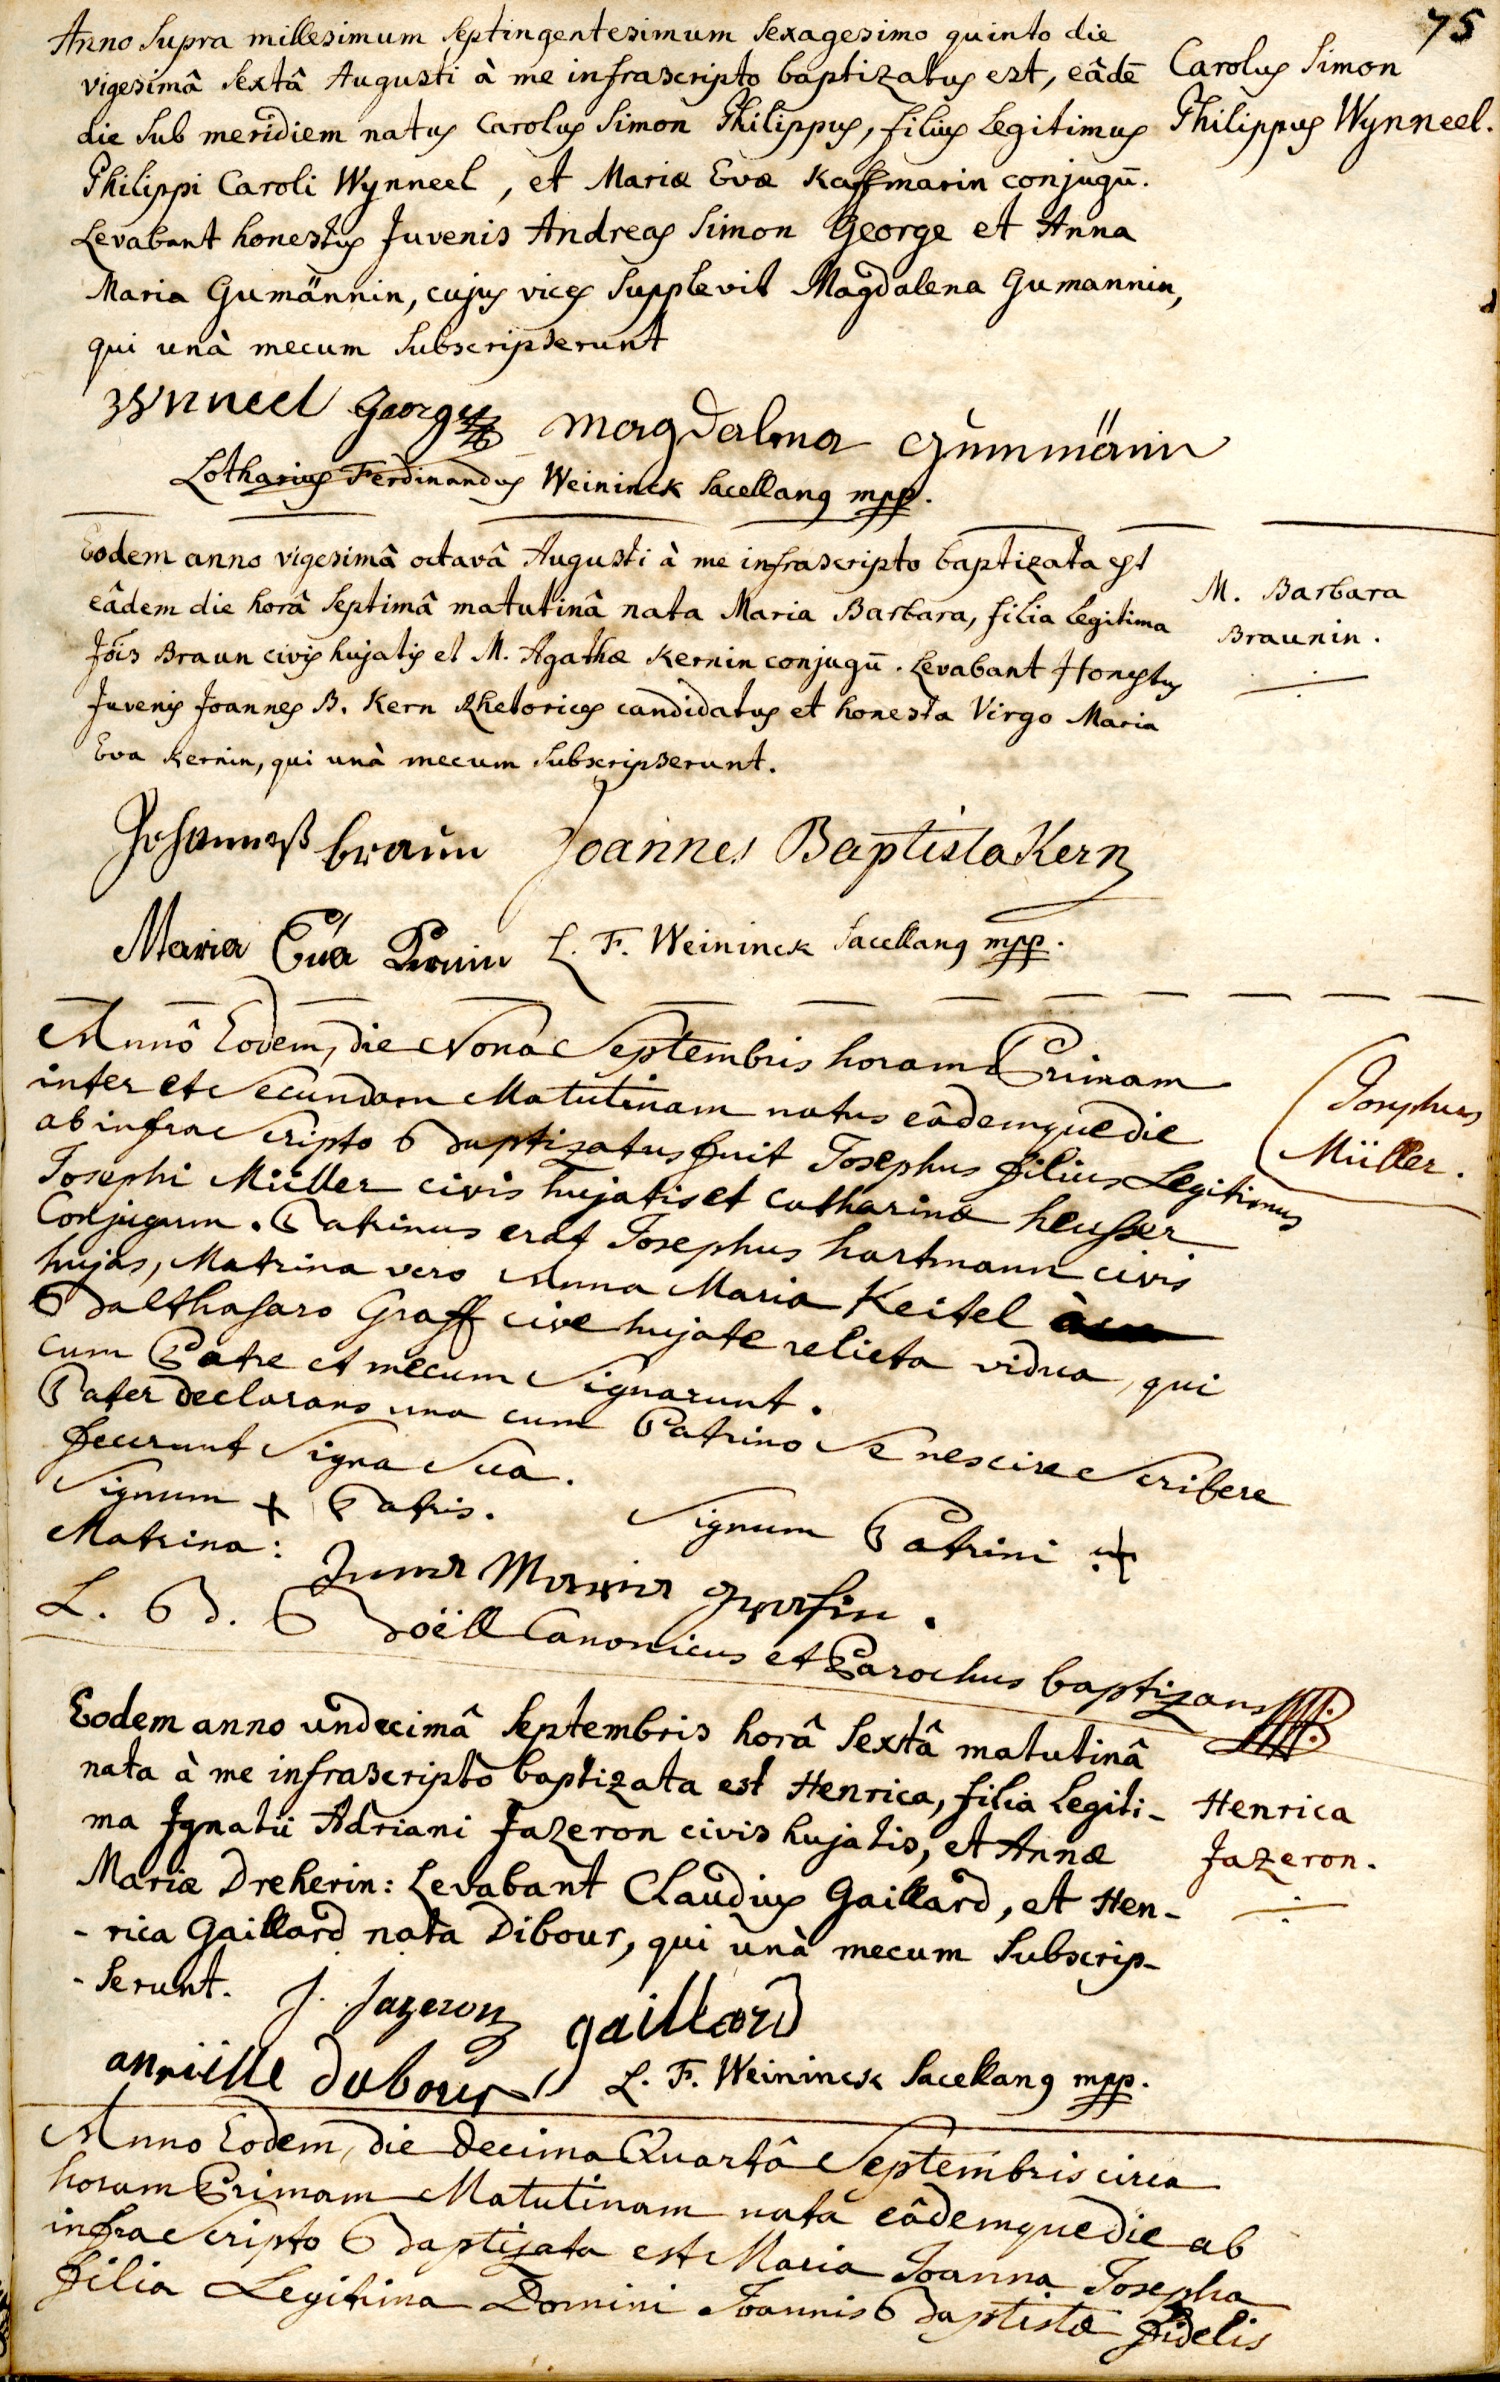 75
Anno Supra millesimum Septingentesimum Sexagesimo quinto die
vigesimâ Sextâ Augusti à me infrascripto baptizatus est, eâdē
die Sub meridiem natus Carolus Simon Philippus, filius Legitimus
Philippi Caroli Wynneel, et Mariæ Evæ Kaffmarin conjugū.
Levabant honestus Juvenis Andreas Simon George et Anna
Maria Gumännin, cujus vices Supplevit Magdalena Gumannin,
qui unà mecum Subscripserunt
Carolus Simon
Philippus Wynneel.
Wynneel George Magdalena Gümmänin
Lotharius Ferdinandus Weininck Sacellang mpp.
Eodem anno vigesimâ octavâ Augusti à me infrascripto baptizata est
eâdem die horâ Septimâ matutinâ nata Maria Barbara, filia Legitima
Jōis Braun civis hujatis et M. Agathæ Kernin conjugū. Levabant Honestus
Juvenis Joannes B. Kern Rhetorices candidatus et honesta Virgo Maria
Eva Kernin, qui unà mecum Subscripserunt.
M. Barbara
Braunin.
Johanneß braun Joannes Baptista Kern
Maria Eva Kernin L. F. Weininck Sacellang mpp.
Annô Eodem, die Nona Septembris horam Primam
inter et Secundam Matutinam natus eâdemque die
ab infra Scripto Baptizatus fuit Josephus filius Legitimus
Josephi Müller civis hujatis et Catharinæ heusser
Conjugum. Patrinus erat Josephus hartmann civis
hujas, Matrina vero Anna Maria Keitel à
Balthasaro Graff cive hujate relicta vidua, qui
cum Patre et mecum Signarunt.
Pater declarans una cum Patrino Se nescire Scribere
fecerunt Signa Sua.
Signum + Patris. Signum Patrini +
Matrina: Anna Maria grafin.
L. B. Boëll Canonicus et Parochus baptizans
Josephus
Müller.
Eodem anno undecimâ Septembris horâ Sextâ matutinâ
nata à me infrascripto baptizata est Henrica, filia Legiti-
ma Ignatii Adriani Jazeron civis hujatis, et Annæ
Mariæ Dreherin: Levabant Claudius Gaillard, et Hen-
-rica Gaillard nata Dibour, qui unà mecum Subscrip-
-Serunt.
Henrica
Jazeron.
J. Jazeron gaillard
anriette dubour L. F. Weininck Sacellang mpp.
Anno Eodem, die decima Quartâ Septembris circa
horam Primam Matutinam nata eâdemque die ab
infra Scripto Baptizata est Maria Joanna Josepha
filia Legitima Domini Joannis Baptistæ fidelis